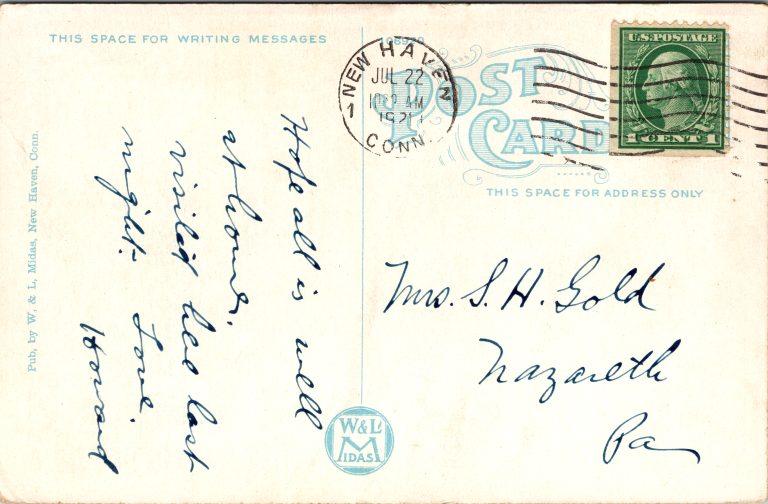 THIS SPACE FOR WRITING MESSAGES
Hope all is well
at home.
visited here last
night. Love.
Howard
Pub. by W. & L. Midas, New Haven, Conn.
W&L
MIDAS
NEW HAVEN
JUL 22
AM
1921
CONN.
1
POST
CARD
U.S. POSTAGE
1 CENT 1
THIS SPACE FOR ADDRESS ONLY
Mrs. S. H. Gold
Nazareth
Pa